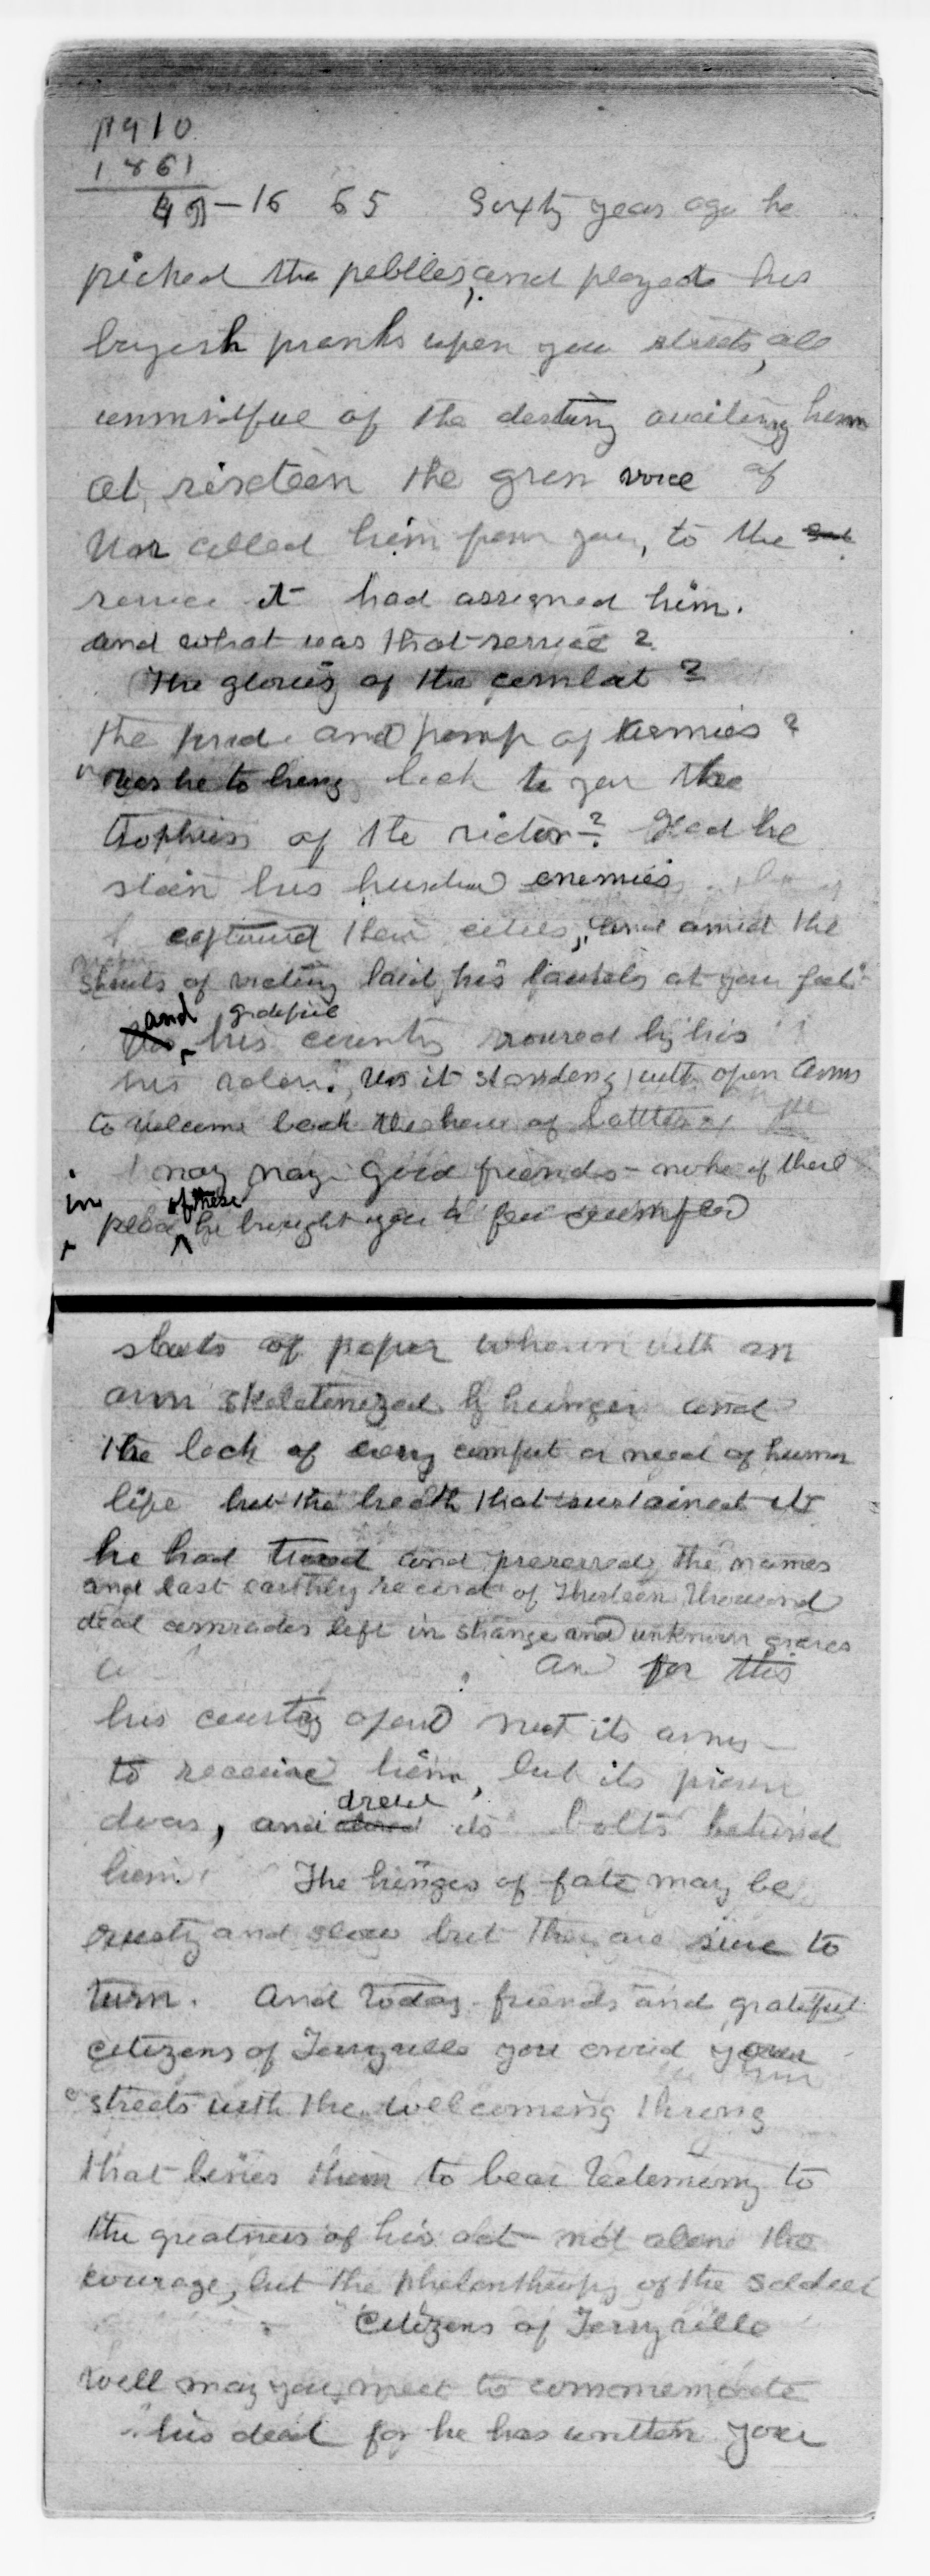 1910
1861
49 - 16 65 Sixty years ago he
picked the pebbles, and played his
boyish pranks upon you streets, all
unmindful of the destiny awaiting him
at sixteen the grim voice of
War called him from you, to the
service it had assigned him.
and what was that service?
The glories of the combat?
the pride and pomp of armies?
was he to bring back to you the
trophies of the victor? Had he
slain his hundred enemies
captured their cities, and amid the
shouts of victory laid his laurels at your feet
and grateful
his country roused by his
his valor? Was it standing with open arms
to welcome back the hero of battles
nay nay good friends - none of these
in place of these he brought you a few crumpled
sheets of paper wherein with an
arm skeletonized by hunger and
the lack of every comfort or need of human
life but the breath that sustained it
he had traced and preserved the names
and last earthly record of Thirteen Thousand
dead comrades left in strange and unknown graves
And for this
his country opend not its arms -
to receive him, but its prison
doors, and drew its bolts behind
him. The hinges of fate may be
rusty and slow but they are sure to
turn. And today friends and grateful
citizens of Terryville you crowd your
streets with the welcoming throng
that lines them to bear testimony to
the greatness of his act - not alone the
courage, but the philanthropy of the soldier
Citizens of Terryville
Well may you meet to commemorate
his deed for he has written your